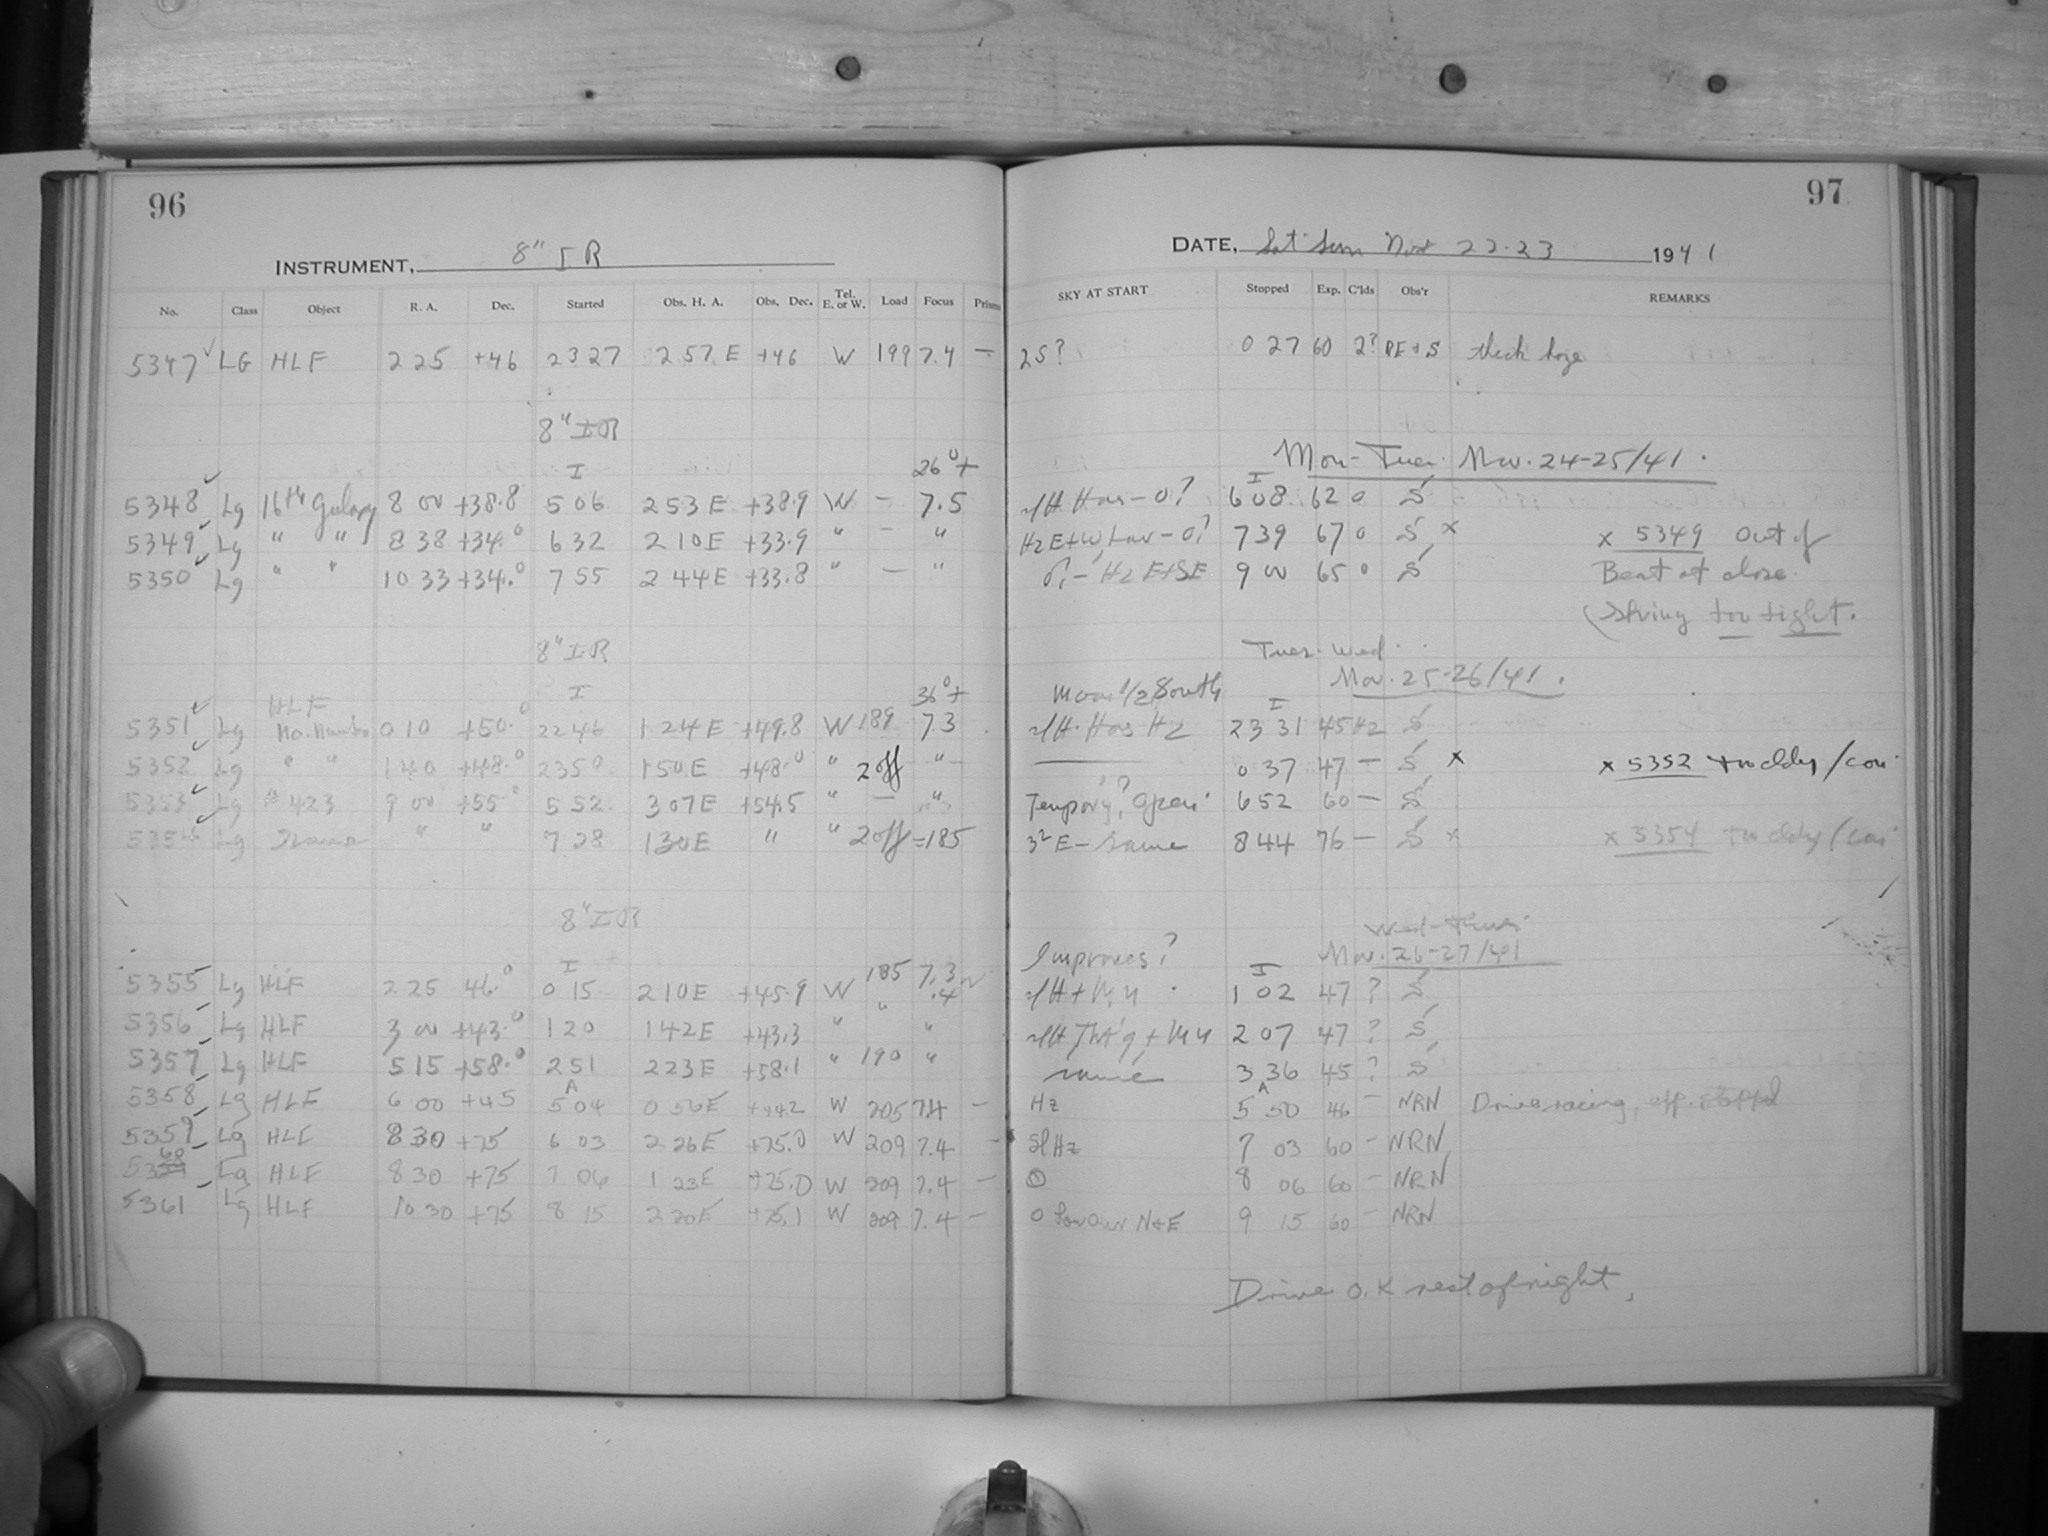 96
97
INSTRUMENT, 8" IR
DATE, Sat Sun Nov 22-23 1941
No. Class Object R. A. Dec. Started Obs. H. A. Obs. Dec. Tel. E. or W. Load Focus Prisms SKY AT START Stopped Exp. C'lds Obs'r REMARKS
5347 LG HLF 2 25 +46 23 27 2 57 E +46 W 199 7.4 — 2S? 0 27 60 2? thick haze
8" IR Mon-Tues. Nov. 24-25/41.
I 26°+ I
5348 Lg 16th Galaxy 8 00 +38.8 5 06 2 53 E +38.9 W — 7.5 6 08 62 0 S
5349 Lg " " 8 38 +34.0 6 32 2 10 E +33.9 " — " 7 39 67 0 S x x 5349 Out of
5350 Lg " " 10 33 +34.0 7 55 2 44 E +33.8 " — " 9 00 65 0 S Beat at close.
(String too tight.
8" IR Tues. Wed.
Nov. 25-26/41.
HLF I 36°+ Moon 1/2 South I
5351 Lg No. Number 0 10 +50.0 22 46 1 24 E +49.8 W 189 7.3 Hz 23 31 45 Hz S
5352 Lg " " 1 40 +48.0 23 50 1 50 E +48.0 " 2 off " 0 37 47 — S x x 5352
5353 Lg # 423 9 00 +55.0 5 52 3 07 E +54.5 " — " 6 52 60 — S
5354 Lg Same " " 7 28 1 30 E " " 2 off = 185 3² E - same 8 44 76 — S x x 5354
8" IR Wed-Thurs
Improves? Nov. 26-27/41
I I
5355 Lg HLF 2 25 46.0 0 15 2 10 E +45.9 W 185 7.3 .4 1 02 47 ? S
5356 Lg HLF 3 00 +43.0 1 20 1 42 E +43.3 " " " 2 07 47 ? S
5357 Lg HLF 5 15 +58.0 2 51 2 23 E +58.1 " 190 " same 3 36 45 ? S
A A
5358 Lg HLF 6 00 +45 5 04 0 56 E +44.2 W 205 7.4 — Hz 5 50 46 — NRN Drive racing,
5359 Lg HLF 8 30 +75 6 03 2 26 E +75.0 W 209 7.4 — Sl Hz 7 03 60 — NRN
5360 Lg HLF 8 30 +75 7 06 1 23 E +75.0 W 209 7.4 — 0 8 06 60 — NRN
5361 Lg HLF 10 30 +75 8 15 2 20 E +75.1 W 209 7.4 — 0 N+E 9 15 60 — NRN
Drive O.K rest of night,